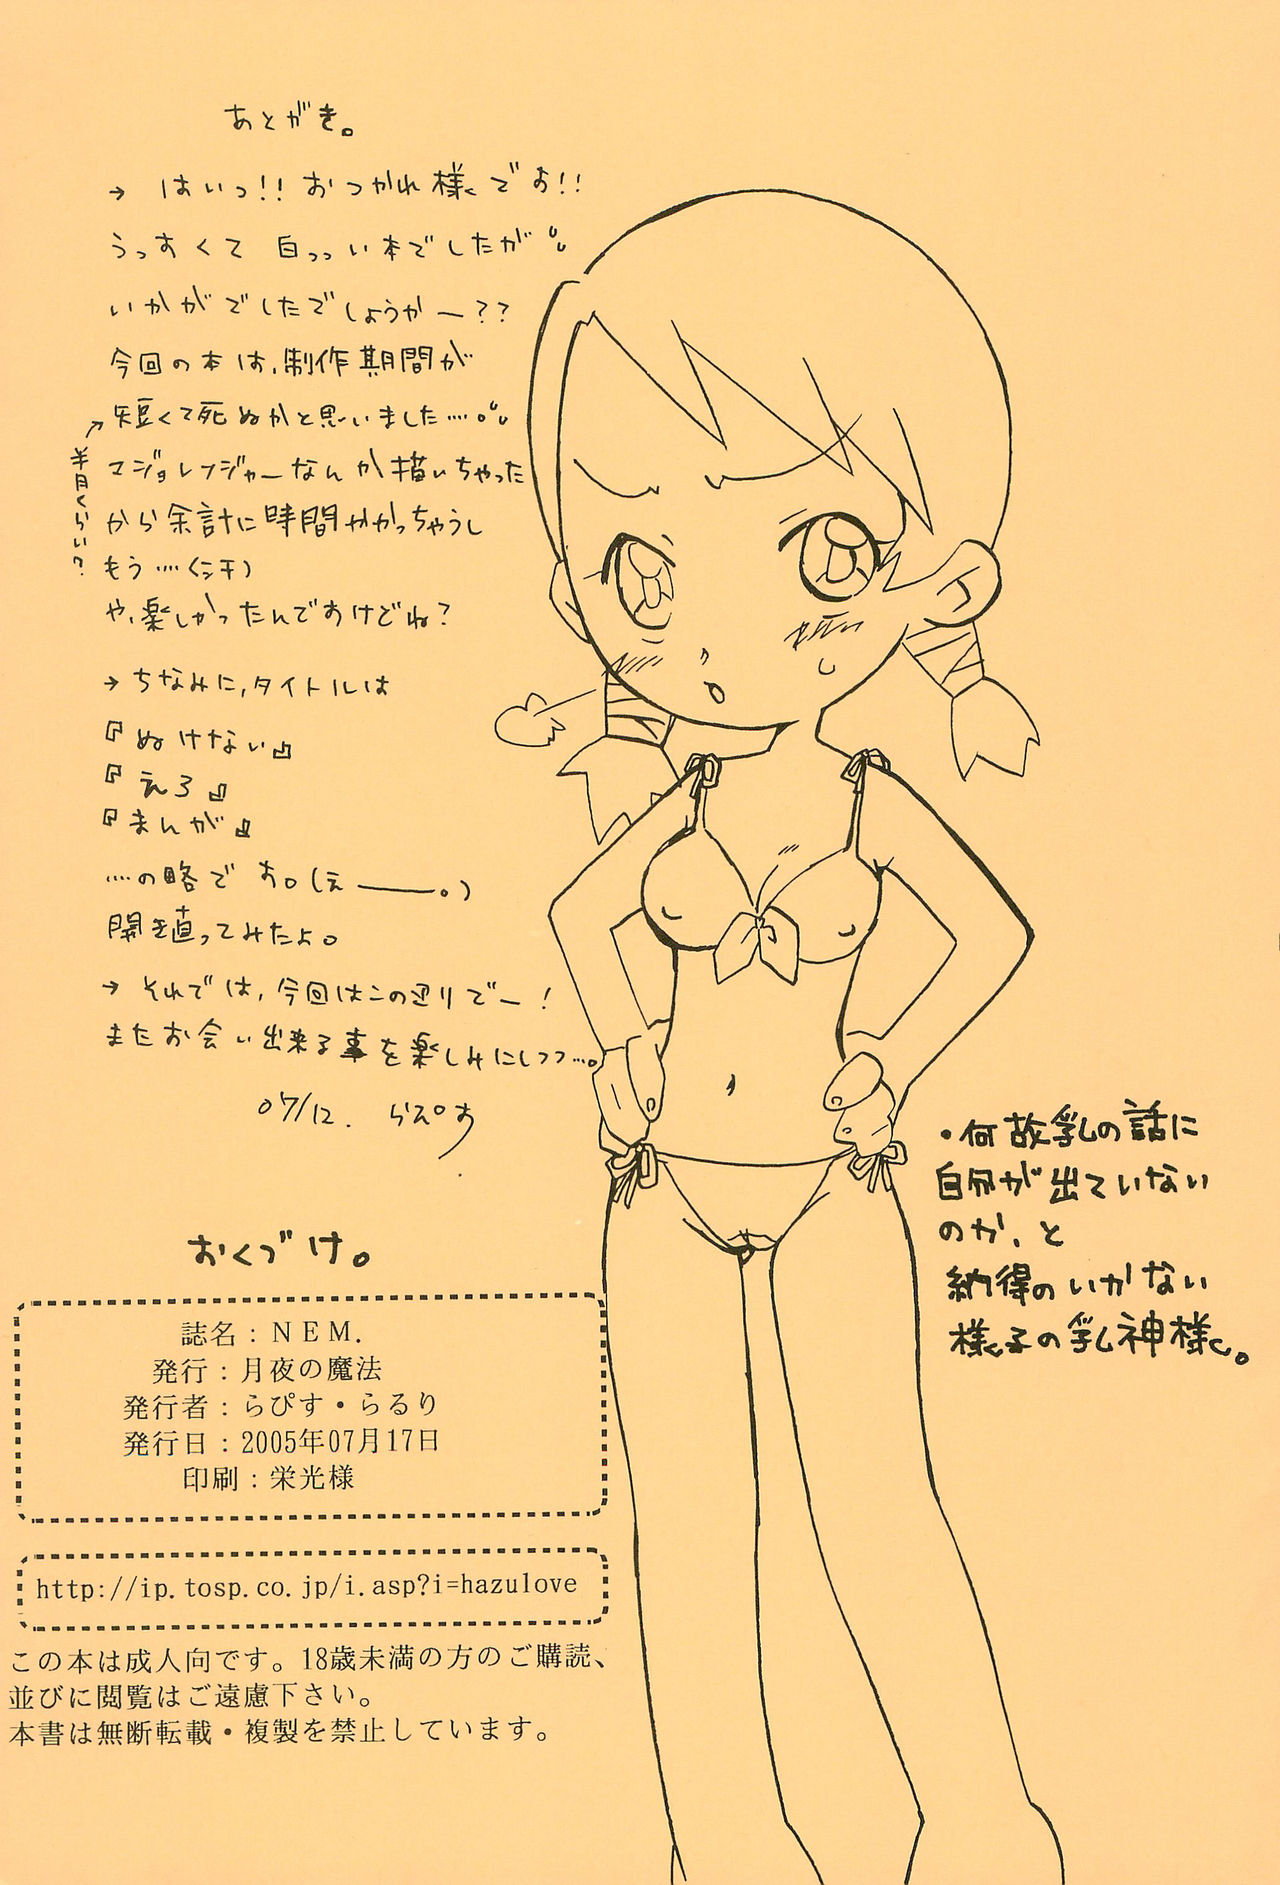 あとがき。
→ はいっ!! おつかれ様です!!
うっすくて 白っっい本でしたが
いかがでしたでしょうかー??
今回の本は、制作期間が
短くて死ぬかと思いました…。
半月くらい?
マジョレンジャーなんか描いちゃった
から余計に時間かかっちゃうし
もう…(汗)
や、楽しかったんですけどね?
→ ちなみに、タイトルは
『ぬけない』
『えろ』
『まんが』
…の略です。(え――。)
開き直ってみたよ。
→ それでは、今回はこの辺りでー!
またお会い出来る事を楽しみにしつつ…。
07/12. らぴす
・何故乳の話に
自分が出ていない
のか、と
納得のいかない
様子の乳神様。
おくづけ。
誌名：NEM.
発行：月夜の魔法
発行者：らぴす・らるり
発行日：2005年07月17日
印刷：栄光様
http://ip.tosp.co.jp/i.asp?i=hazulove
この本は成人向です。18歳未満の方のご購読、
並びに閲覧はご遠慮下さい。
本書は無断転載・複製を禁止しています。